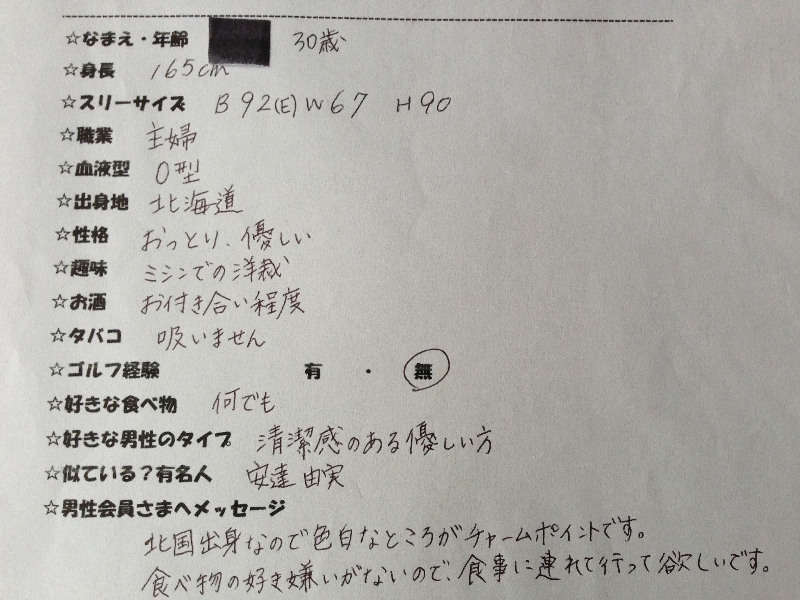 ☆なまえ・年齢 30歳
☆身長 165cm
☆スリーサイズ B 92(E) W 67 H 90
☆職業 主婦
☆血液型 O型
☆出身地 北海道
☆性格 おっとり、優しい
☆趣味 ミシンでの洋裁
☆お酒 お付き合い程度
☆タバコ 吸いません
☆ゴルフ経験 有 ・ 無
☆好きな食べ物 何でも
☆好きな男性のタイプ 清潔感のある優しい方
☆似ている?有名人 安達由実
☆男性会員さまへメッセージ
北国出身なので色白なところがチャームポイントです。
食べ物の好き嫌いがないので、食事に連れて行って欲しいです。